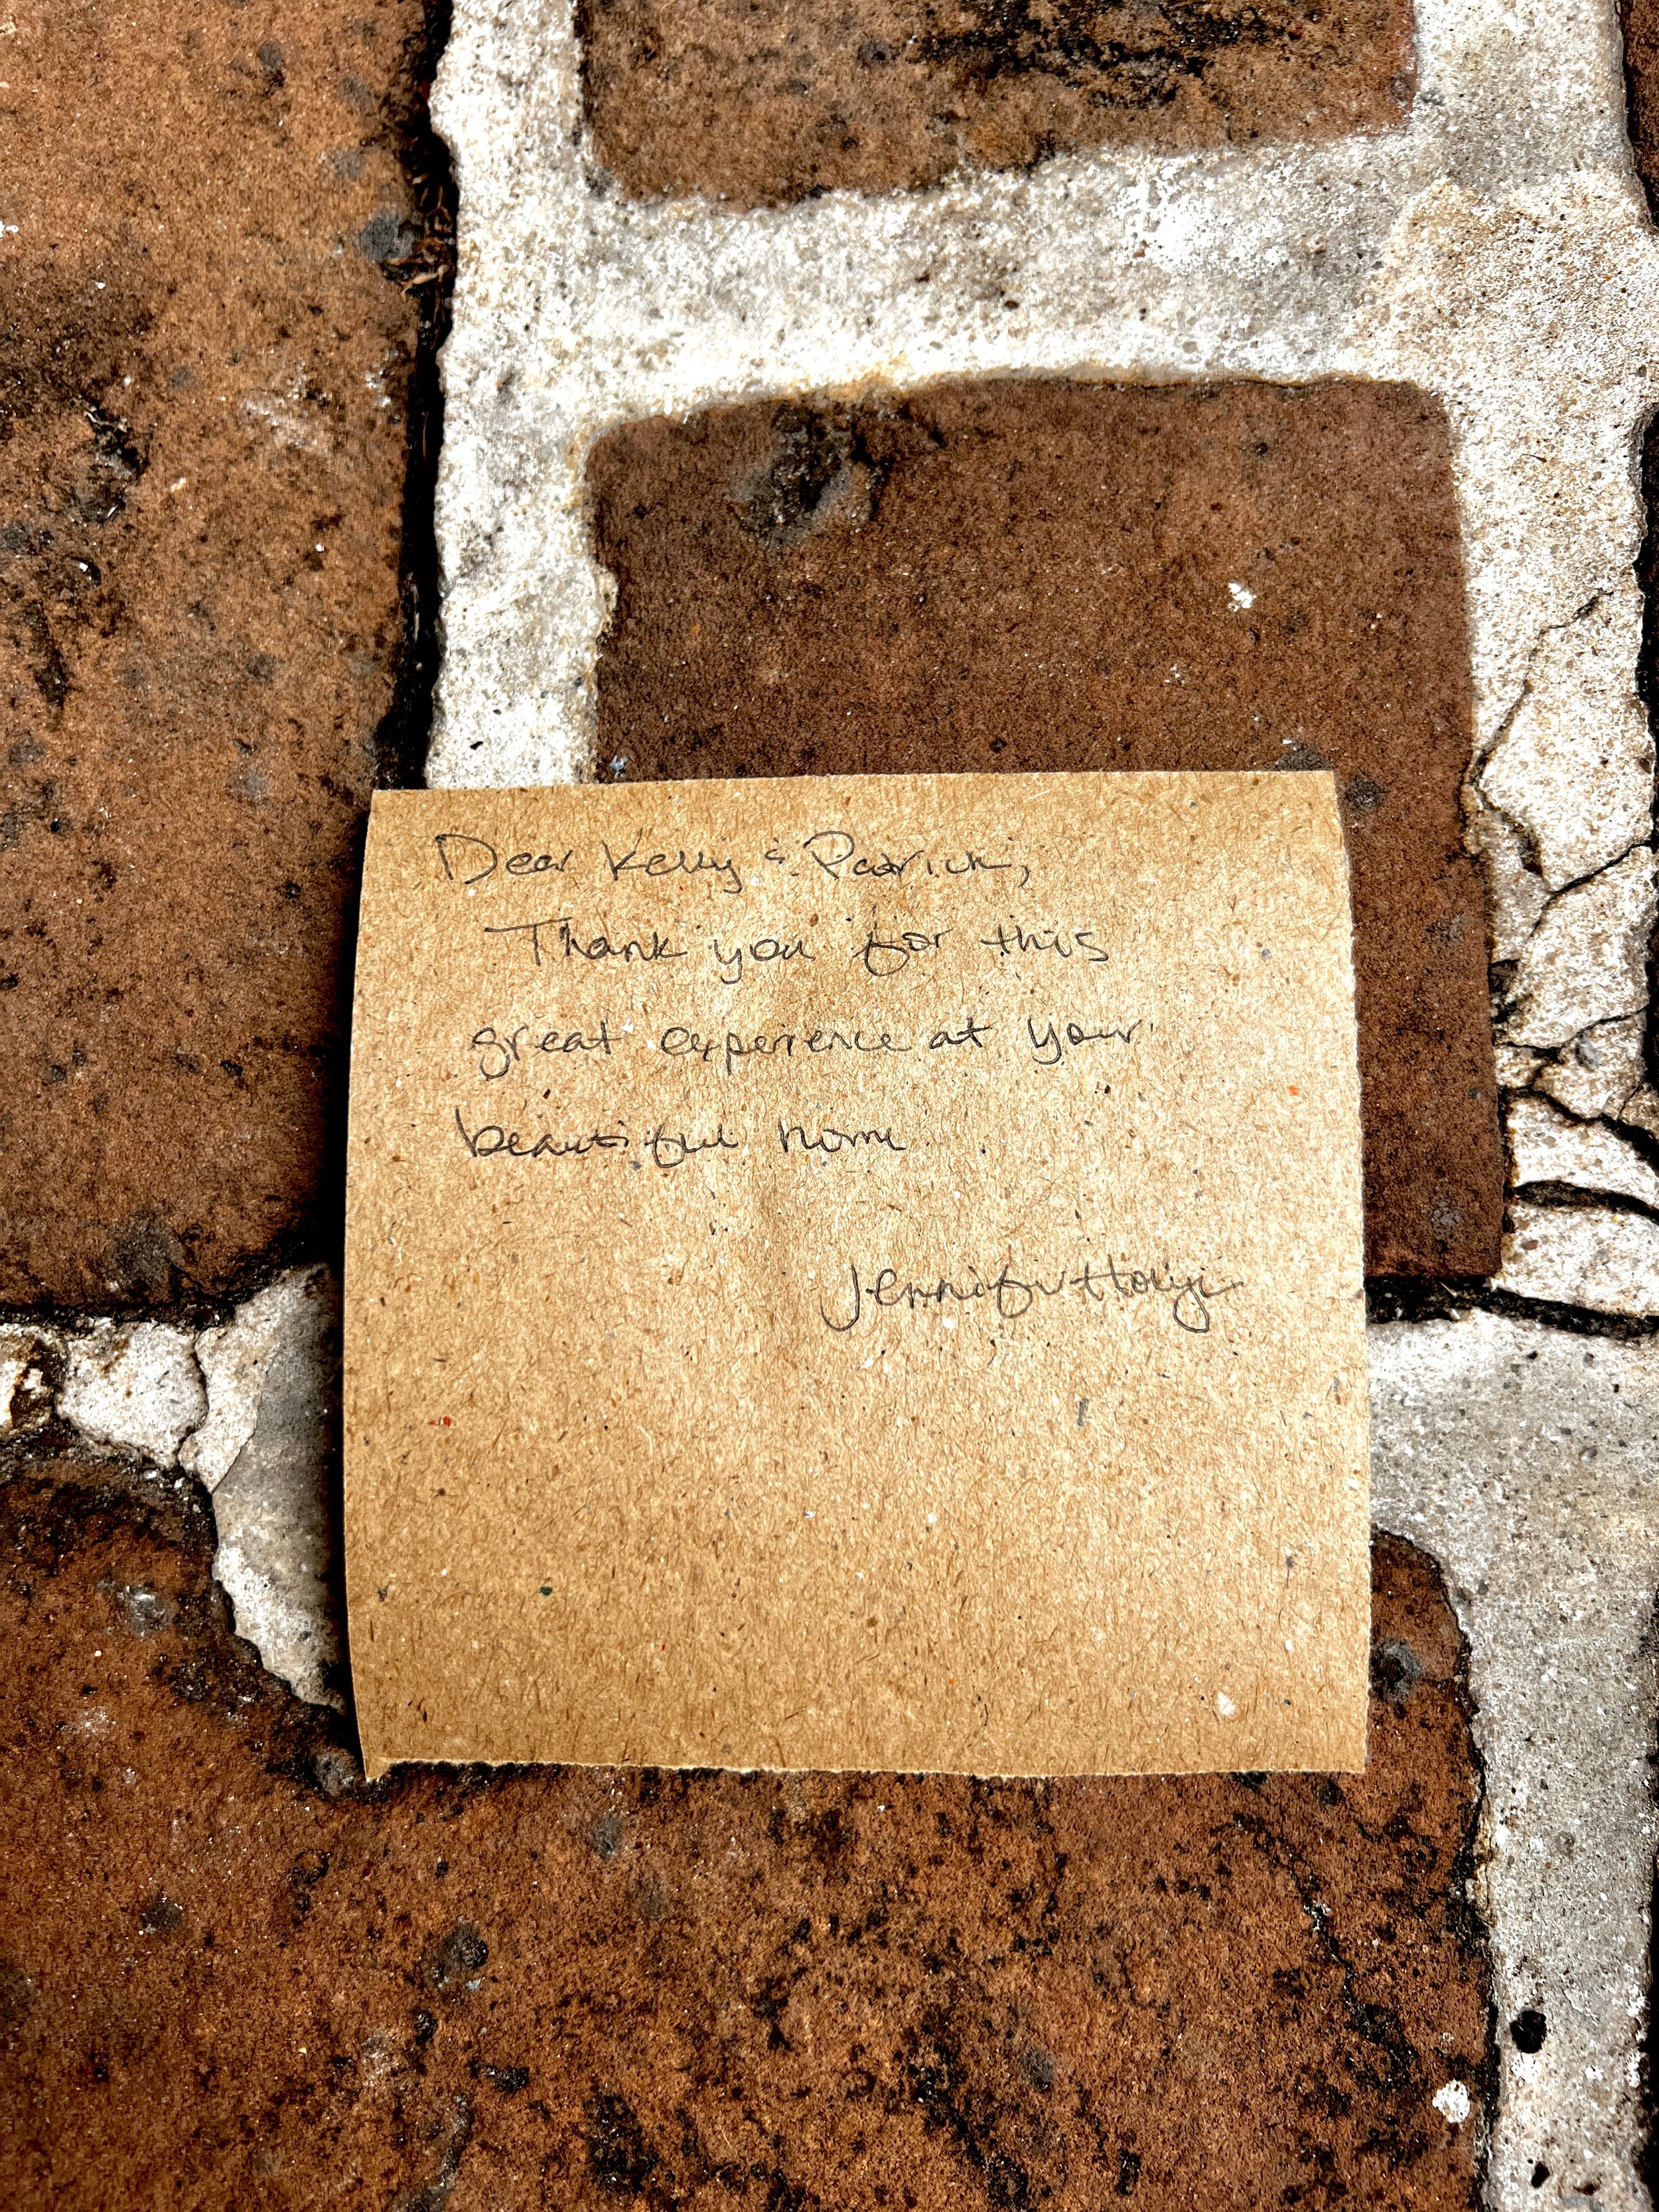 Dear Kelly & Patrick,
Thank you for this
great experience at your
beautiful home
Jennifer